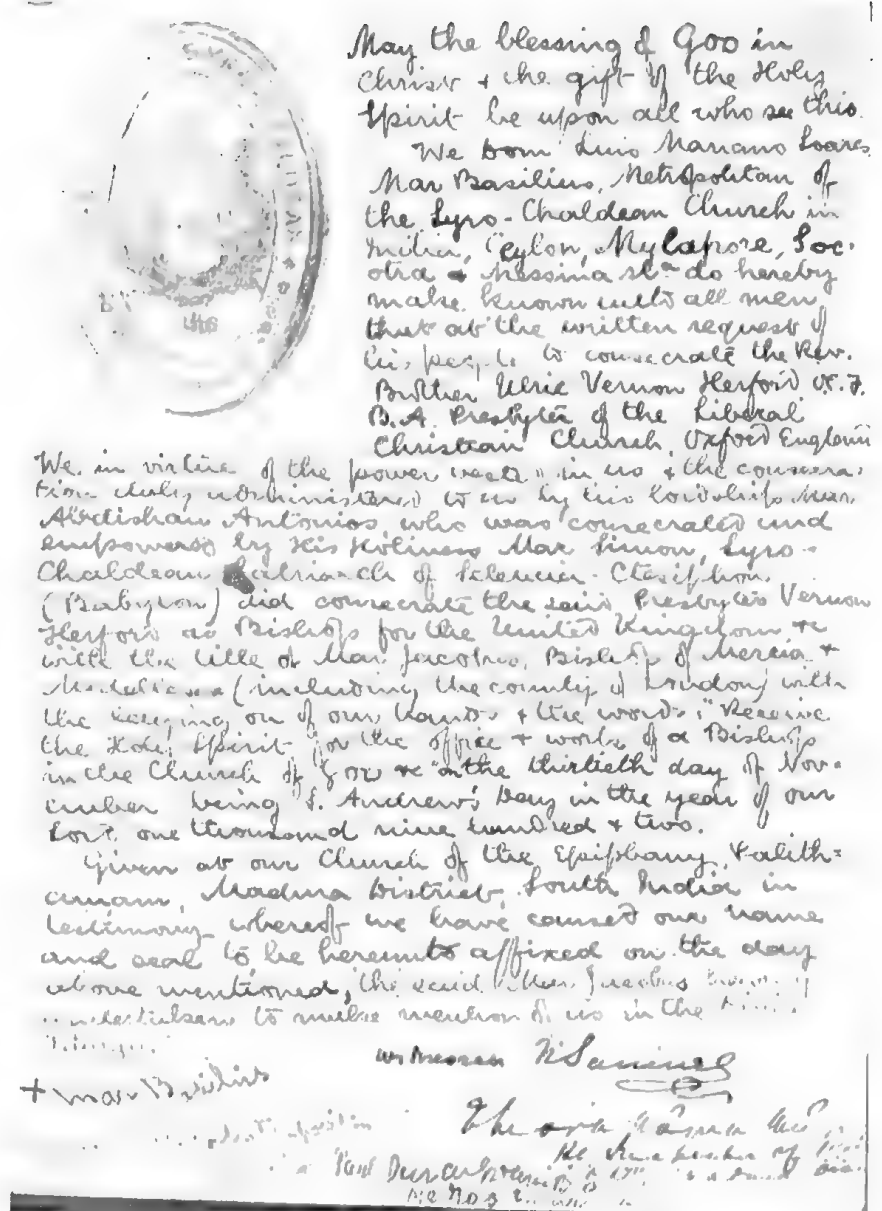 May the blessing of God in
Christ + the gift of the Holy
Spirit be upon all who see this.
We Dom Luis Mariano Soares
Mar Basilius, Metropolitan of
the Syro-Chaldean Church in
India, Ceylon, Mylapore, Soc-
otra & Messina &c do hereby
make known unto all men
that at the written request of
his people to consecrate the Rev.
Brother Ulric Vernon Herford
B.A. Presbyter of the Liberal
Christian Church, Oxford England
We in virtue of the power vested in us & the consecra-
tion duly administered to us by his lordship Mar
Abdishau Antonios who was consecrated and
empowered by His Holiness Mar Simon, Syro-
Chaldean Patriarch of Seleucia-Ctesiphon
(Babylon) did consecrate the said Presbyter Vernon
Herford as Bishop for the United Kingdom &c
with the title of Mar Jacobus, Bishop of Mercia +
(including the county of London) with
the laying on of our hands + the words "Receive
the Holy Spirit for the office + work of a Bishop
in the Church of God &c" on the thirtieth day of Nov-
ember being S. Andrew's Day in the year of our
Lord one thousand nine hundred + two.
Given at our Church of the Epiphany,
Madura District, South India in
testimony whereof we have caused our name
and seal to be hereunto affixed on the day
above mentioned, the said Mar Jacobus
to make mention of us in the
+ Mar Basilius
witnesses